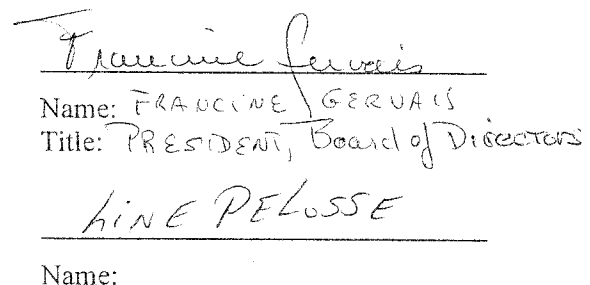 Francine Gervais
Name: FRANCINE GERVAIS
Title: PRESIDENT, Board of Directors
LINE PELOSSE
Name: